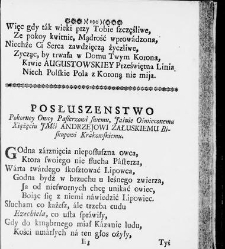 Więc gdy tak wieki przy Tobie szczęśliwe,
Ze pokoy kwitnie, Mądrość wprowadzona,
Niechże Ci Serca zawdzięczą życzliwe,
Zycząc, by trwała w Domu Twym Korona,
Krwie AUGUSTOWSKIEY Przeświętna Linia
Niech Polskie Pola z Koroną nie mija.
POSŁUSZENSTWO
Pokorney Owcy Pasterzowi swemu, Jaśnie Oświeconemu
Xiążęciu JMći ANDRZEJOWI ZAŁUSKIEMU Bi-
skupowi Krakowskiemu.
Godna zárznięcia nieposłuszna owca,
Ktora swoiego nie słucha Pásterza,
Warta twárdego skosztowáć Lipowca,
Godna bydź w brzuchu u leśnego zwierza,
Ja od niesfornych chcę unikáć owiec,
Boiąc się z niemi náwiedzić Lipowiec.
Słucham co każesz, ále trzebá cudu
Ezechiela, co usta spráwiły,
Gdy do
mego miał Kázanie ludu,
Kości
ná ten głos ożyły,
Tyś